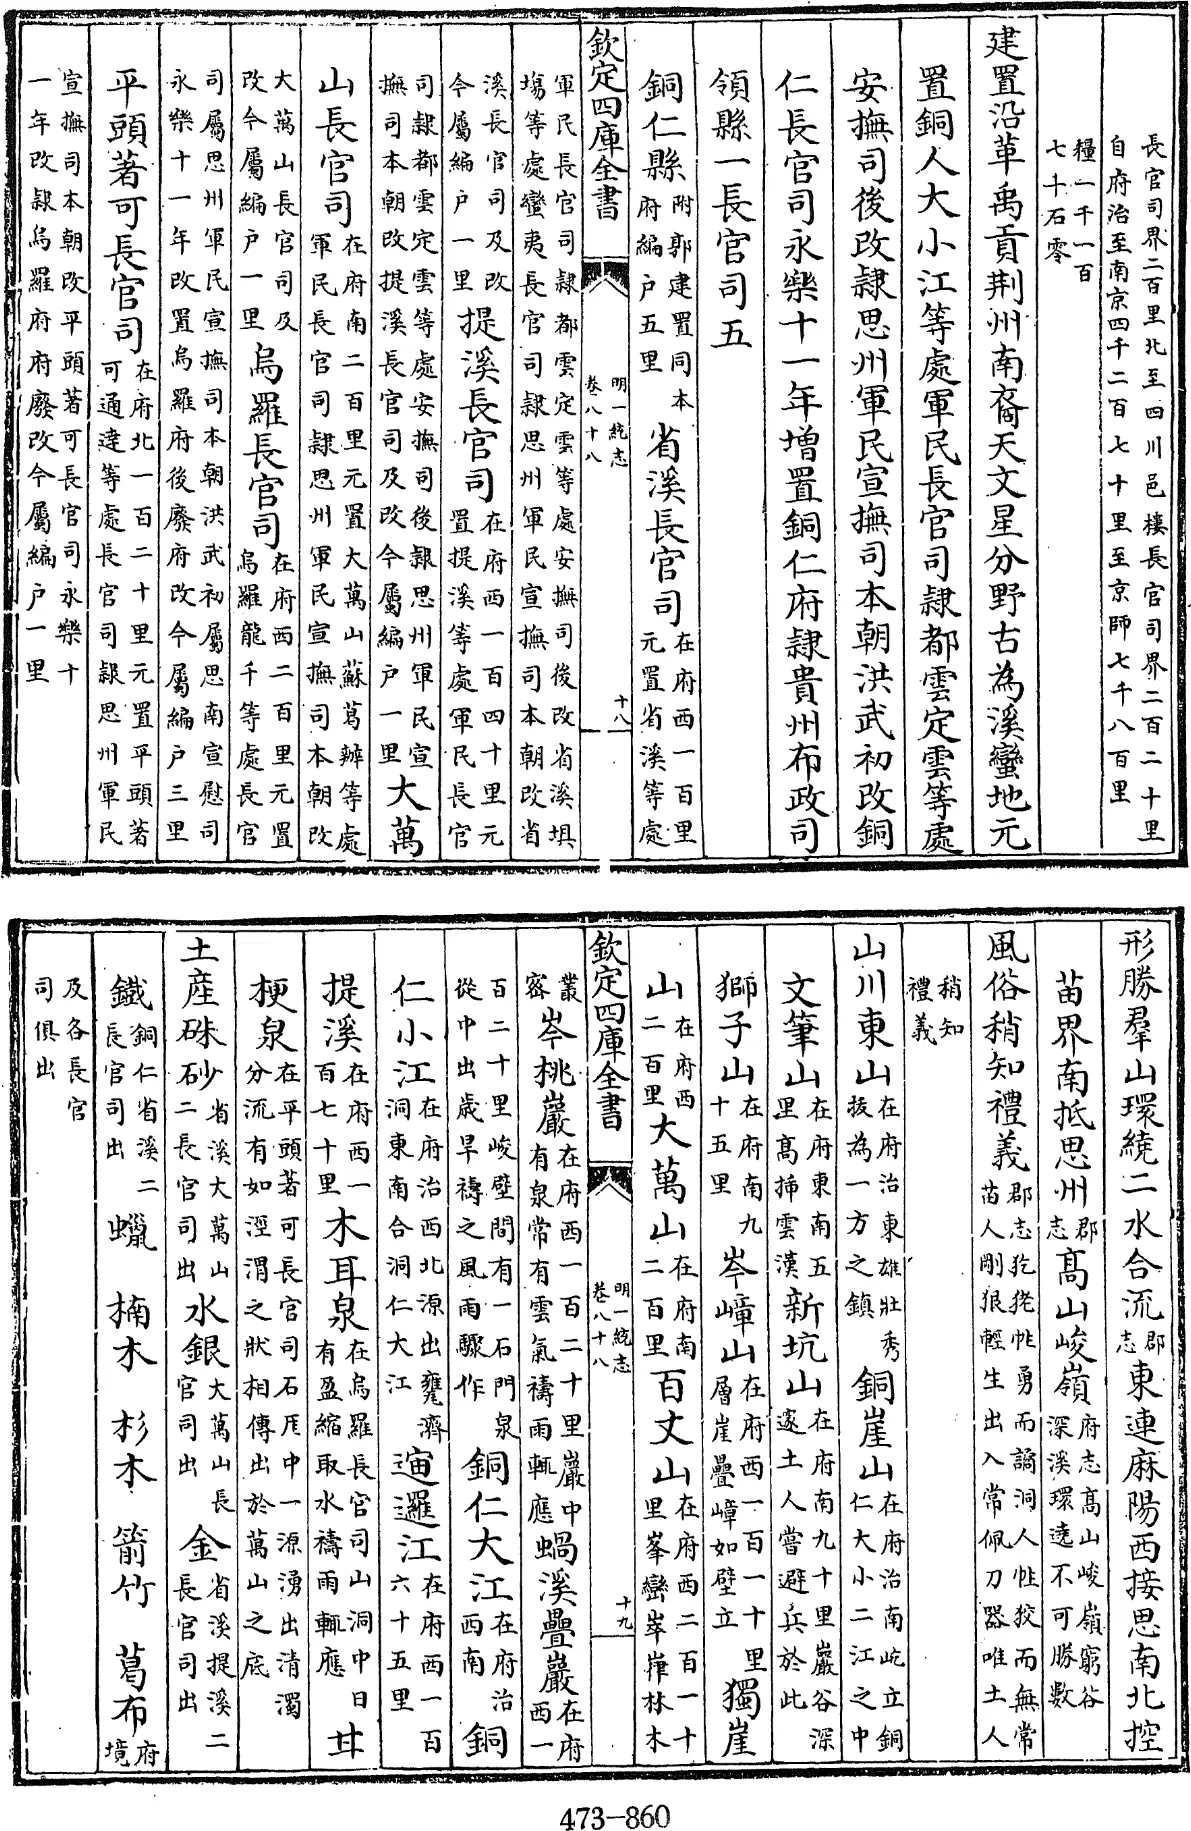 長官司界二百里北至四川邑樓長官司界二百二十里
自府治至南京四千二百七十里至京師七千八百里
糧一千一百
七十石零
建置沿革禹貢荆州南裔天文星分野古為溪蠻地元
置銅人大小江等處軍民長官司隸都雲定雲等處
安撫司後改隸思州軍民宣撫司本朝洪武初改銅
仁長官司永樂十一年增置銅仁府隸貴州布政司
領縣一長官司五
銅仁縣附郭建置同本府編户五里省溪長官司在府西一百里元置省溪等處
欽定四庫全書 明一統志 卷八十八 十八
軍民長官司隸都雲定雲等處安撫司後改省溪埧場等處蠻夷長官司隸思州軍民宣撫司本朝改省
溪長官司及改今屬編户一里提溪長官司在府西一百四十里元置提溪等處軍民長官
司隸都雲定雲等處安撫司後隸思州軍民宣撫司本朝改提溪長官司及改今屬編户一里大萬
山長官司在府南二百里元置大萬山蘇葛辦等處軍民長官司隸思州軍民宣撫司本朝改
大萬山長官司及改今屬編户一里烏羅長官司在府西二百里元置烏羅龍千等處長官
司屬思州軍民宣撫司本朝洪武初屬思南宣慰司永樂十一年改置烏羅府後廢府改今屬編户三里
平頭著可長官司在府北一百二十里元置平頭著可通達等處長官司隸思州軍民
宣撫司本朝改平頭著可長官司永樂十一年改隸烏羅府府廢改今屬編户一里
形勝羣山環繞二水合流郡志東連麻陽西接思南北控
苗界南抵思州郡志高山峻嶺府志高山峻嶺窮谷深溪環遶不可勝數
風俗稍知禮義郡志犵狫性勇而譎洞人性狡而無常苗人剛狠輕生出入常佩刀器唯土人
稍知禮義
山川東山在府治東雄壯秀拔為一方之鎮銅崖山在府治南屹立銅仁大小二江之中
文筆山在府東南五里高揷雲漢新坑山在府南九十里巖谷深邃土人嘗避兵於此
獅子山在府南九十五里岑嶂山在府西一百一十里層崖疊嶂如壁立獨崖
山在府西二百里大萬山在府南二百里百丈山在府西二百一十里峯巒崒嵂林木
欽定四庫全書 明一統志 卷八十八 十九
叢密岑桃巖在府西一百二十里巖中有泉常有雲氣禱雨輒應蝸溪疊巖在府西一
百二十里峻壁間有一石門泉從中出歲旱禱之風雨驟作銅仁大江在府治西南銅
仁小江在府治西北源出甕濟洞東南合洞仁大江逥邏江在府西一百六十五里
提溪在府西一百七十里木耳泉在烏羅長官司山洞中日有盈縮取水禱雨輒應甘
梗泉在平頭著可長官司石厓中一源湧出清濁分流有如涇渭之狀相傳出於萬山之底
土產硃砂省溪大萬山二長官司出水銀大萬山長官司出金省溪提溪二長官司出
鐵銅仁省溪二長官司出蠟 楠木 杉木 箭竹 葛布府境
及各長官司俱出
473-860